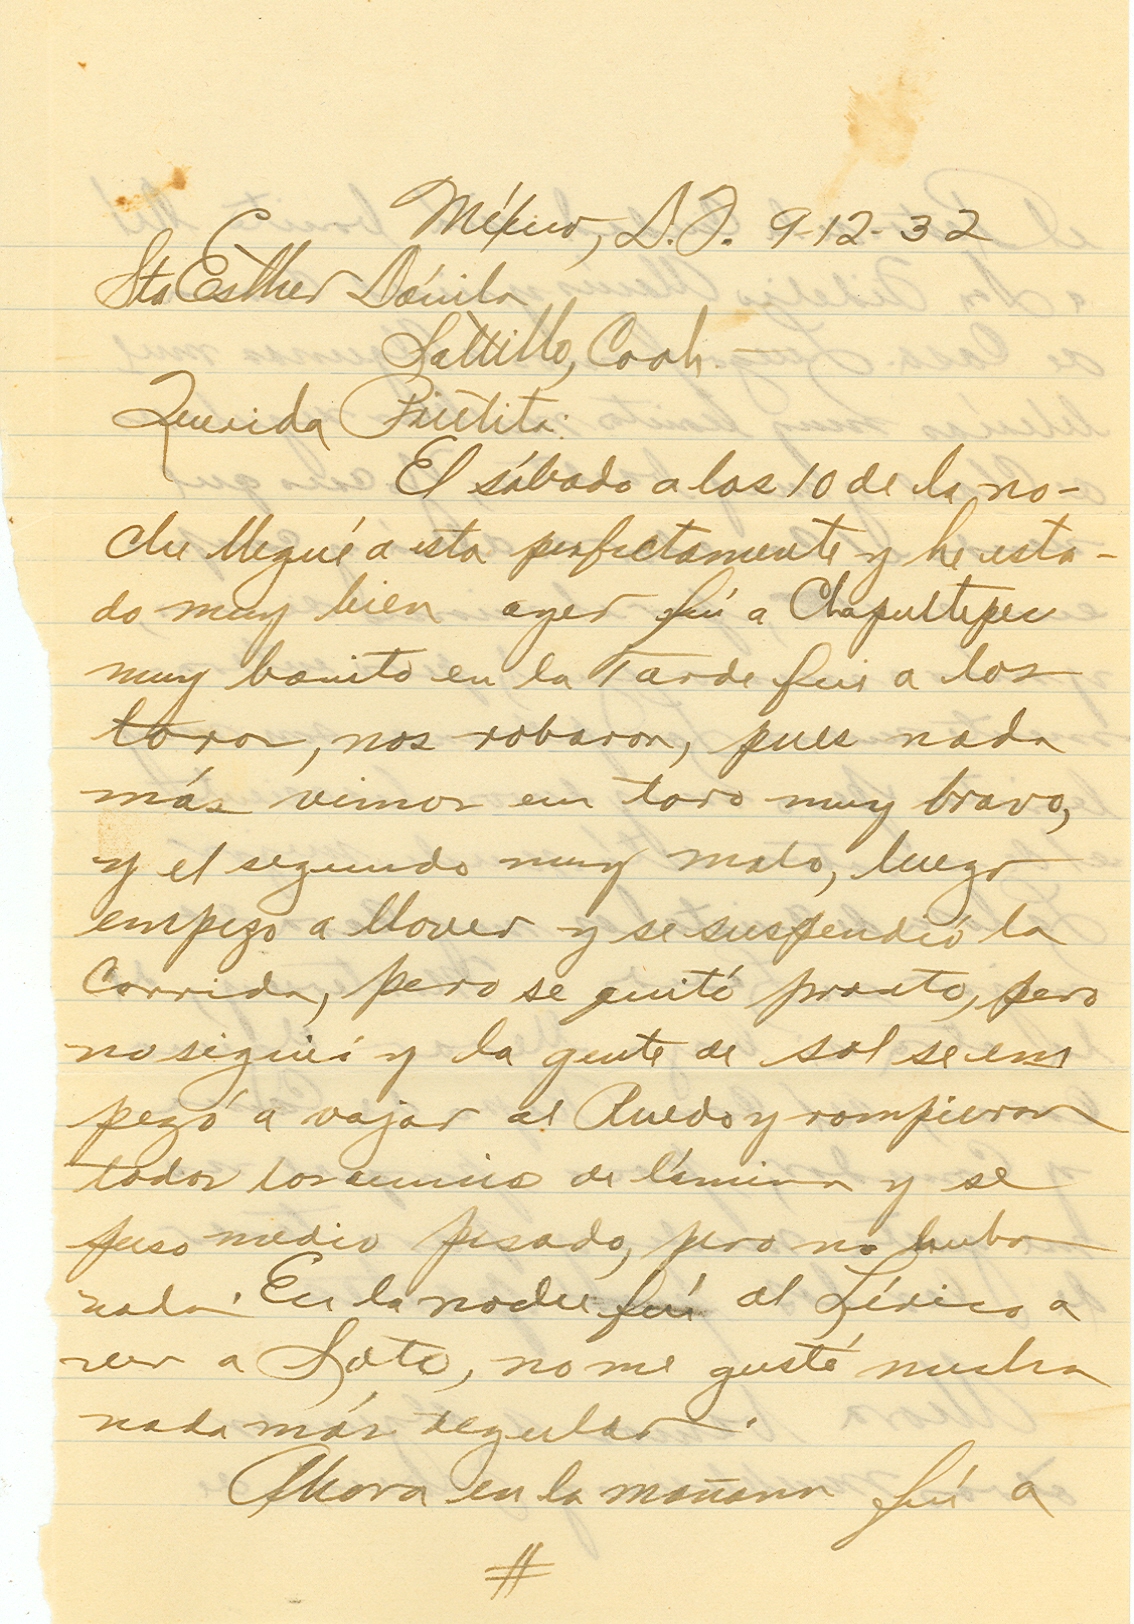 México, D.F. 9-12-32
Sta Esther Dávila
Saltillo, Coah.
Querida
El sábado a las 10 de la no-
che llegué a esta perfectamente y he esta-
do muy bien ayer fuí a Chapultepec
muy bonito en la Tarde fui a los
toros, nos robaron, pues nada
más vimos un toro muy bravo,
y el segundo muy malo, luego
empezo a llover y se suspendió la
Corrida, pero se quitó pronto, pero
no siguió y la gente de sol se em
pezó a vajar al Ruedo y rompieron
todos los anuncios de lámina y se
puso medio pesado, pero no hubo
nada. En la noche fuí al Lírico a
ver a Soto, no me gustó mucho
nada más regular.
Ahora en la mañana fuí a
#